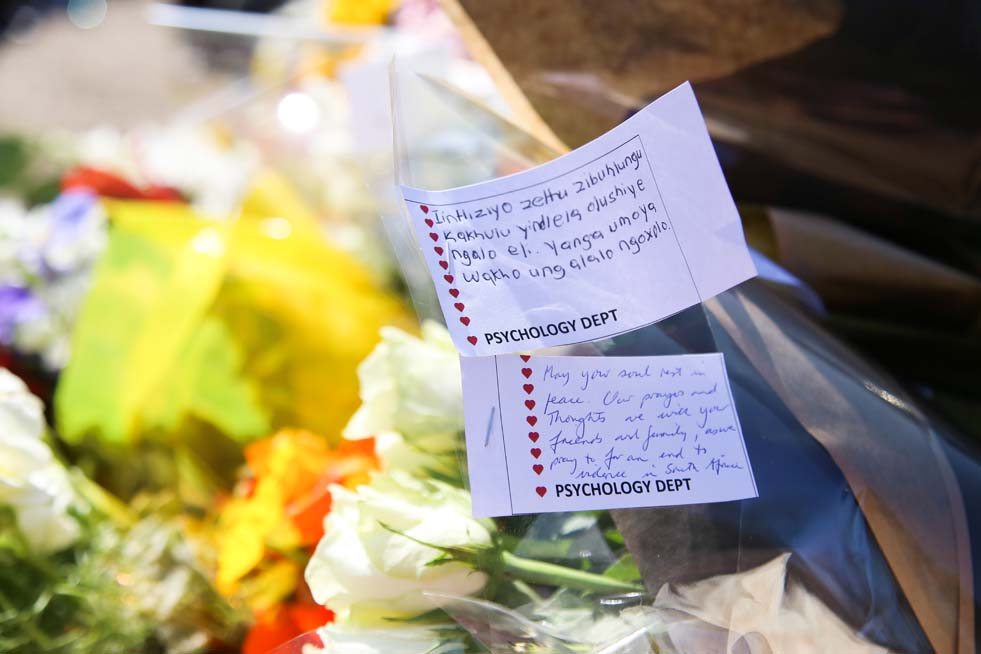 Iintliziyo zethu zibuhlungu
Kakhulu yindlela olushiye
ngalo eli.. Yanga umoya
wakho ungalalo ngoxolo.
PSYCHOLOGY DEPT
May your soul rest in
peace. Our prayers and
Thoughts are with your
friends and family, as we
pray to for an end to
violence in South Africa
PSYCHOLOGY DEPT